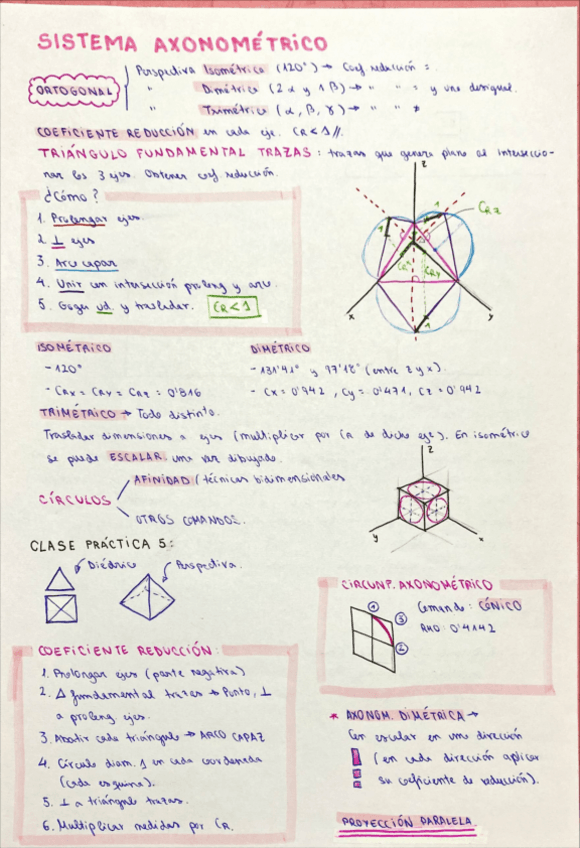 SISTEMA AXONOMÉTRICO
ORTOGONAL
Perspectiva Isométrica (120°) → Coef reducción = .
" Dimétrica (2 α y 1 β) → " " = y uno desigual.
" Trimétrica (α, β, γ) → " " ≠
COEFICIENTE REDUCCIÓN en cada eje. CR < 1 //.
TRIÁNGULO FUNDAMENTAL TRAZAS: trazas que genera plano al interseccio-
nar los 3 ejes. Obtener coef reducción.
¿Cómo?
1. Prolongar ejes.
2. ⊥ ejes
3. Arco capaz
4. Unir con intersección prolong y arco.
5. Coger ud. y trasladar. CR < 1
z
1
1
CRZ
CRX
CRY
1
x
y
ISOMÉTRICO
- 120°
- CRX = CRY = CRZ = 0'816
DIMÉTRICO
- 131'41° y 97'18° (entre z y x).
- Cx = 0'942 , Cy = 0'471, Cz = 0'942
TRIMÉTRICO → Todo distinto.
Trasladar dimensiones a ejes (multiplicar por CR de dicho eje). En isométrico
se puede ESCALAR una vez dibujado.
CÍRCULOS
AFINIDAD (técnicas bidimensionales
OTROS COMANDOS.
z
y
x
CLASE PRÁCTICA 5:
Diédrico
Perspectiva.
CIRCUNF. AXONOMÉTRICO
1
3
2
Comando: CÓNICO
RHO: 0'4142
COEFICIENTE REDUCCIÓN:
1. Prolongar ejes (parte negativa)
2. Δ fundamental trazas → Punto, ⊥
a prolong ejes.
3. Abatir cada triángulo → ARCO CAPAZ
4. Círculo diam. 1 en cada coordenada
(cada esquina).
5. ⊥ a triángulo trazas.
6. Multiplicar medidas por CR.
* AXONOM. DIMÉTRICA →
Con escalar en una dirección
(en cada dirección aplicar
su coeficiente de reducción).
PROYECCIÓN PARALELA.